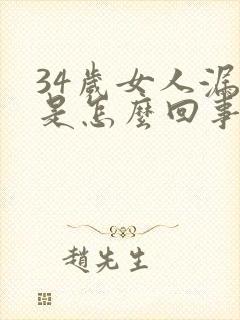 34歲女人漏
是怎麼回事
趙先生